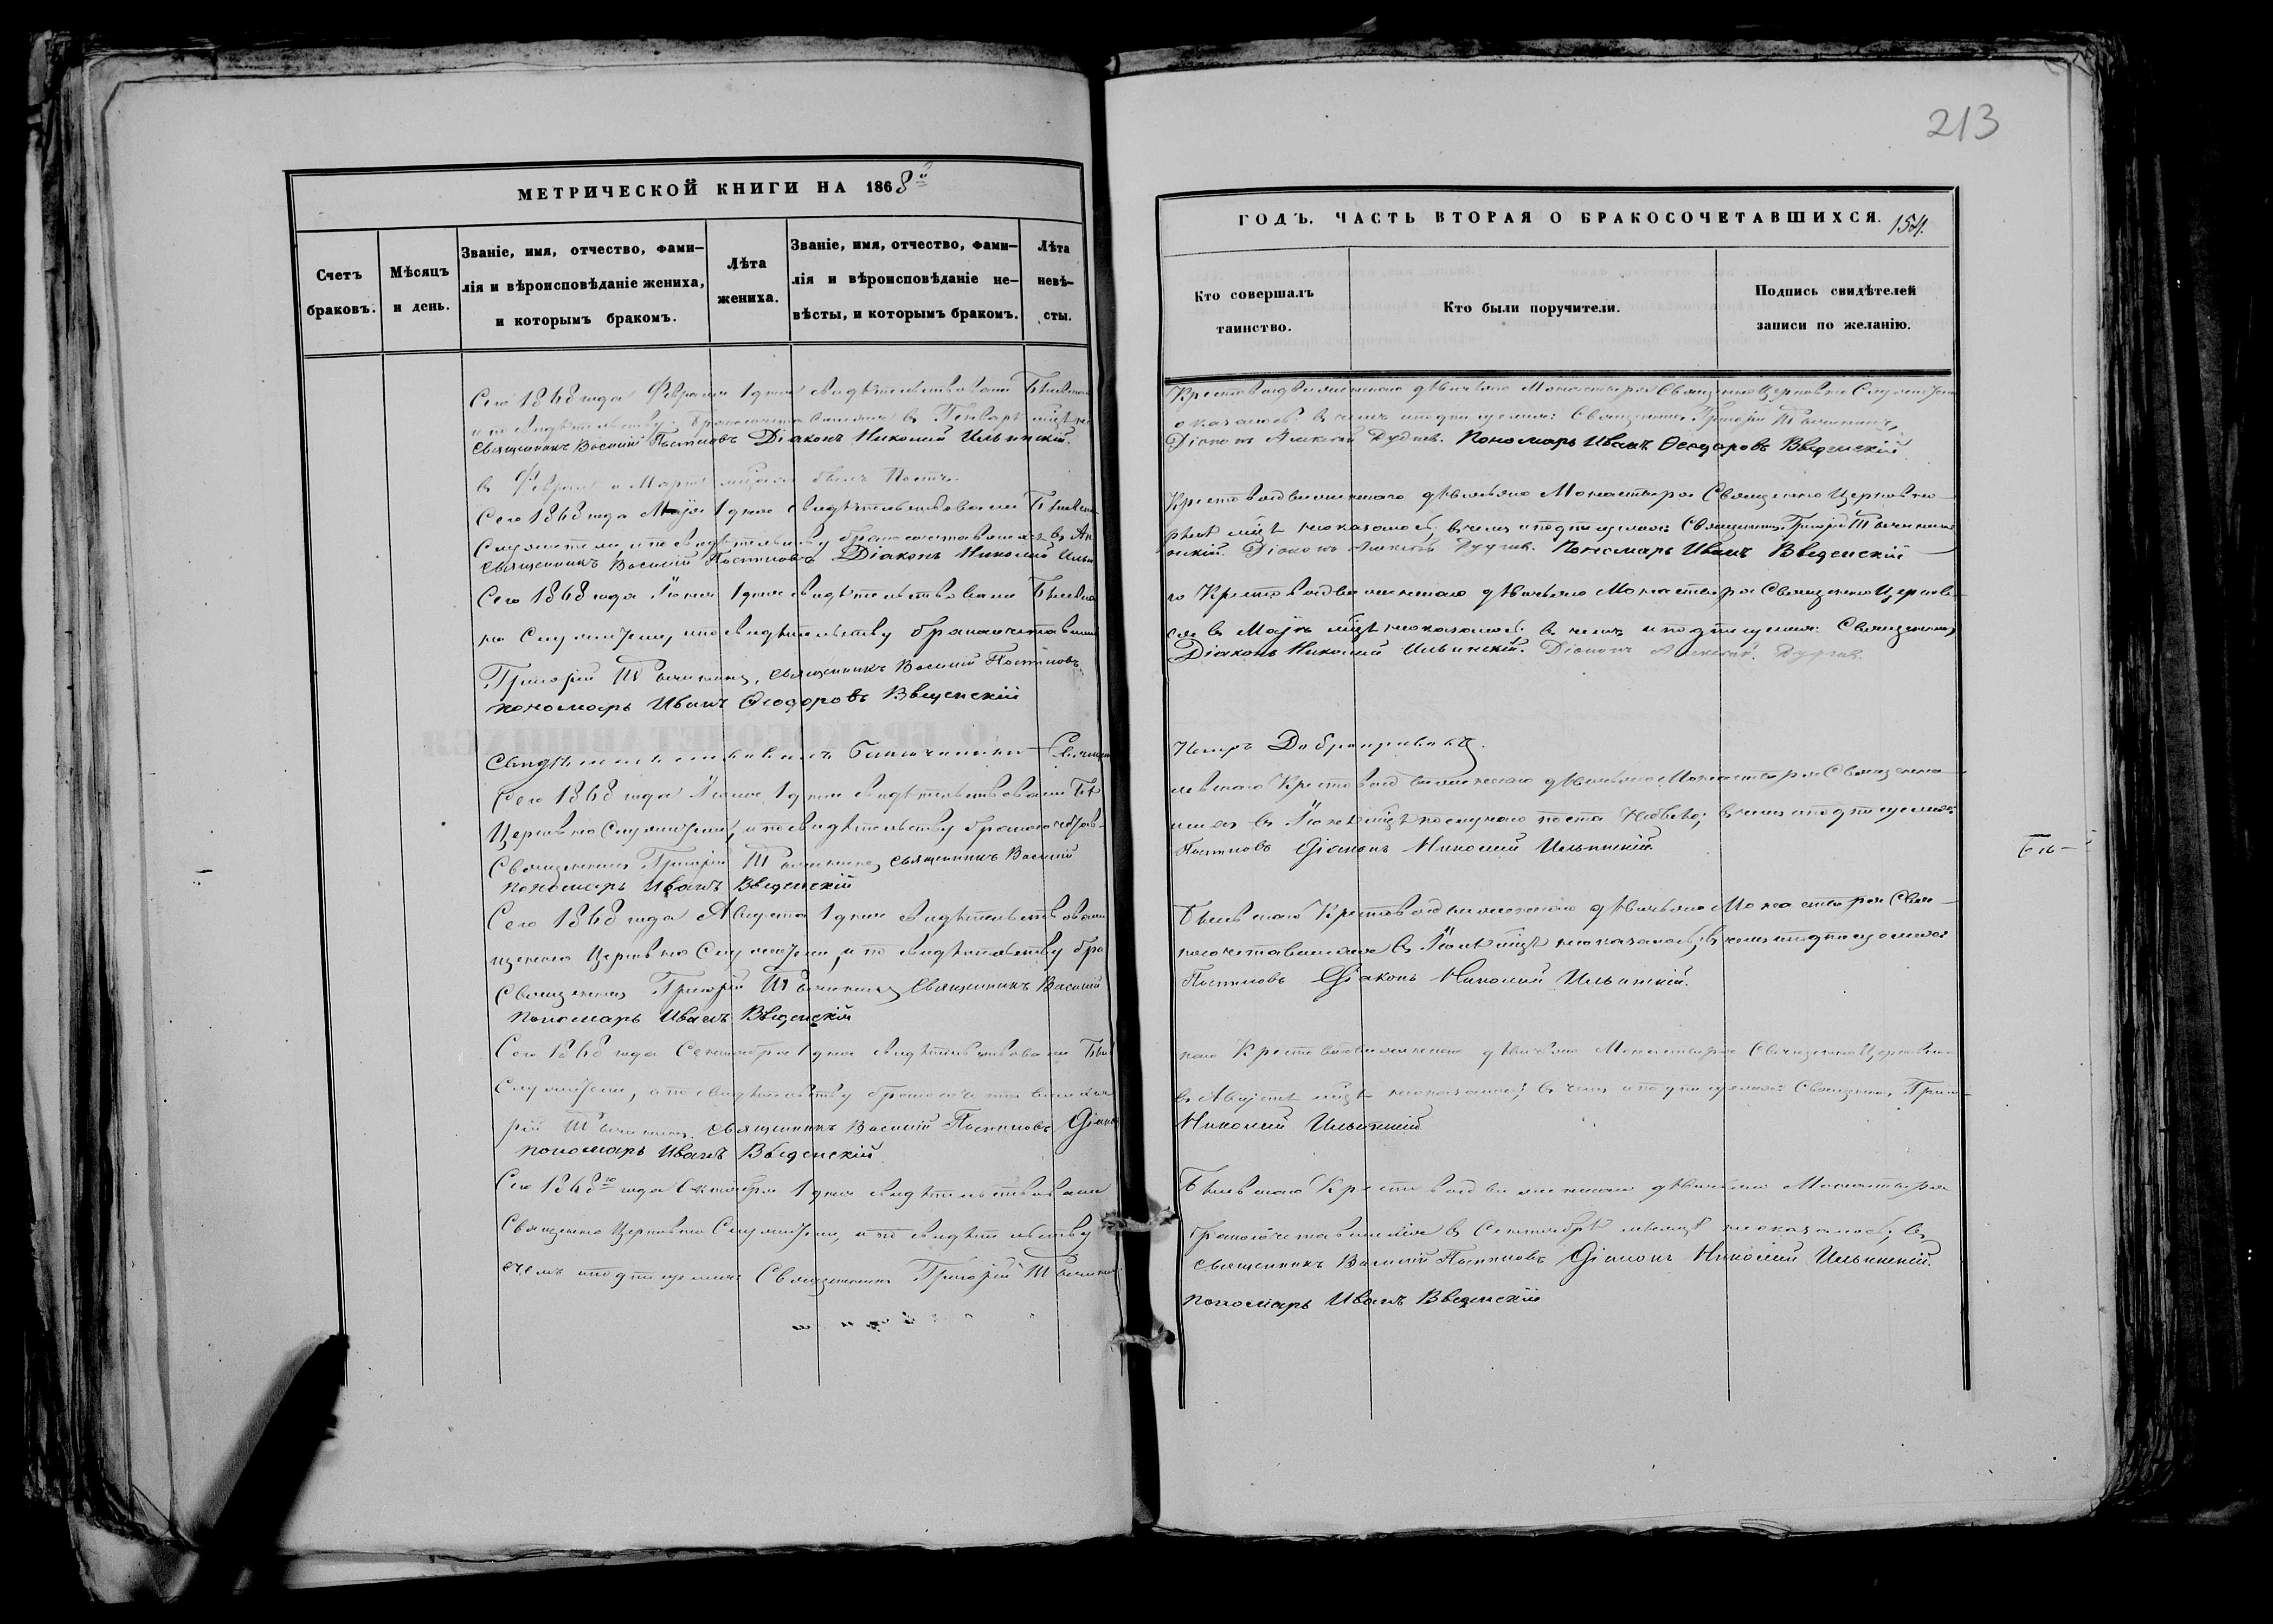 МЕТРИЧЕСКОЙ КНИГИ НА 1868й
Счетъ браковъ.
Мѣсяцъ и день.
Званіе, имя, отчество, фами-
лія и вѣроисповѣданіе жениха,
и которымъ бракомъ.
Лѣта жениха.
Званіе, имя, отчество, фами-
лія и вѣроисповѣданіе не-
вѣсты, и которымъ бракомъ.
Лѣта невѣ-
сты.
Сего 1868 года Февраля 1 дня свидѣтельствовали
и по свидѣтельству бракосочетавшихся въ Генварѣ
Священникъ Василій Постниковъ Діаконъ Николай Ильинскій.
въ Февралѣ и Мартѣ былъ Постъ.
Сего 1868 года Маія 1 дня свидѣтельствовали
Служители и по свидѣтельству бракосочетавшихся въ Ап
Священникъ Василій Постниковъ Діаконъ Николай Ильи
Сего 1868 года Іюня 1 дня свидѣтельствовали
но Служители, и по свидѣтельству бракосочетавши
Григорій священникъ Василій Постниковъ
пономарь Иванъ Ѳеодоровъ Введенскій
Свидѣтельствовалъ Благочинный Священ
Сего 1868 года Іюля 1 дня свидѣтельствовали Бѣ
Церковно Служители, и по свидѣтельству бракосочетав-
Священникъ Григорій священникъ Василій
пономарь Иванъ Введенскій
Сего 1868 года Августа 1 дня свидѣтельствовали
щенно Церковно Служители, и по свидѣтельству бра
Священникъ Григорій священникъ Василій
пономарь Иванъ Введенскій
Сего 1868 года Сентября 1 дня свидѣтельствовали
Служители, и по свидѣтельству бракосочетавшихся
рій священникъ Василій Постниковъ Діакон
пономарь Иванъ Введенскій
Сего 1868го года Октября 1 дня свидѣтельствовали
Священно Церковно Служители, и по свидѣтельству
чемъ и подписуемся Священникъ Григорій
213
ГОДЪ. ЧАСТЬ ВТОРАЯ О БРАКОСОЧЕТАВШИХСЯ.
154.
Кто совершалъ
таинство.
Кто были поручители.
Подпись свидѣтелей
записи по желанію.
Крестовоздвиженскаго дѣвичьяго Монастыря Священно Церковно Служители
оказалось въ чемъ и подписуемся: Священникъ Григорій
Діаконъ Алексѣй Пономарь Иванъ Ѳеодоровъ Введенскій
Крестовоздвиженскаго дѣвичьяго Монастыря Священно Церковно
рѣлѣ мцѣ неоказалось въ чемъ и подписуемся: Священникъ Григорій
нскій. Діаконъ Алексѣй Пономарь Иванъ Введенскій
го Крестовоздвиженскаго дѣвичьяго Монастыря Священно Церков-
ся въ Маіѣ мцѣ неоказалось въ чемъ и подписуемся: Священникъ
Діаконъ Николай Ильинскій. Діаконъ Алексѣй
левскаго Крестовоздвиженскаго дѣвичьяго Монастыря Священно
шихся въ Іюнѣ мцѣ по случаю поста небыло; въ чемъ и подписуемся:
Постниковъ Діаконъ Николай Ильинскій
Бѣлевскаго Крестовоздвиженскаго дѣвичьяго Монастыря Свя-
косочетавшихся въ Іюлѣ мцѣ неоказалось, въ чемъ и подписуемся:
Постниковъ Діаконъ Николай Ильинскій.
скаго Крестовоздвиженскаго дѣвичьяго Монастыря Священно Церковно-
въ Августѣ мцѣ неоказалось; въ чемъ и подписуемся: Священникъ Григо-
Николай Ильинскій
Бѣлевскаго Крестовоздвиженскаго дѣвичьяго Монастыря
бракосочетавшихся въ Сентябрѣ мѣсяцѣ неоказалось, въ
священникъ Василій Постниковъ Діаконъ Николай Ильинскій
пономарь Иванъ Введенскій